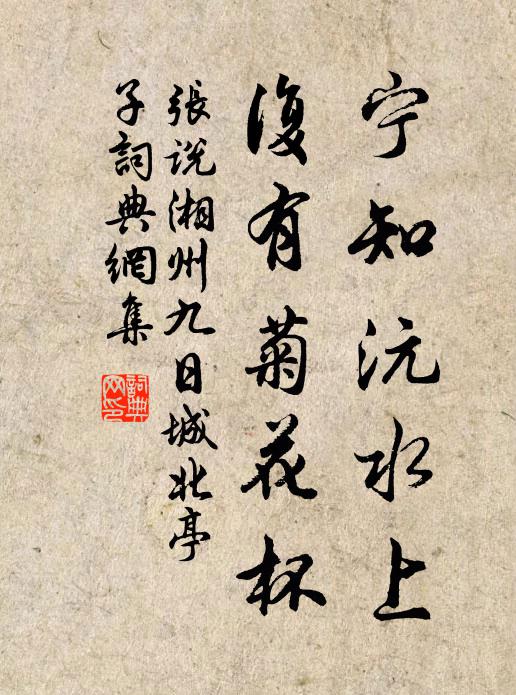 宁知沅水上
復有菊花杯
張説湘州九日城北亭
子詞典網集
詞典网印